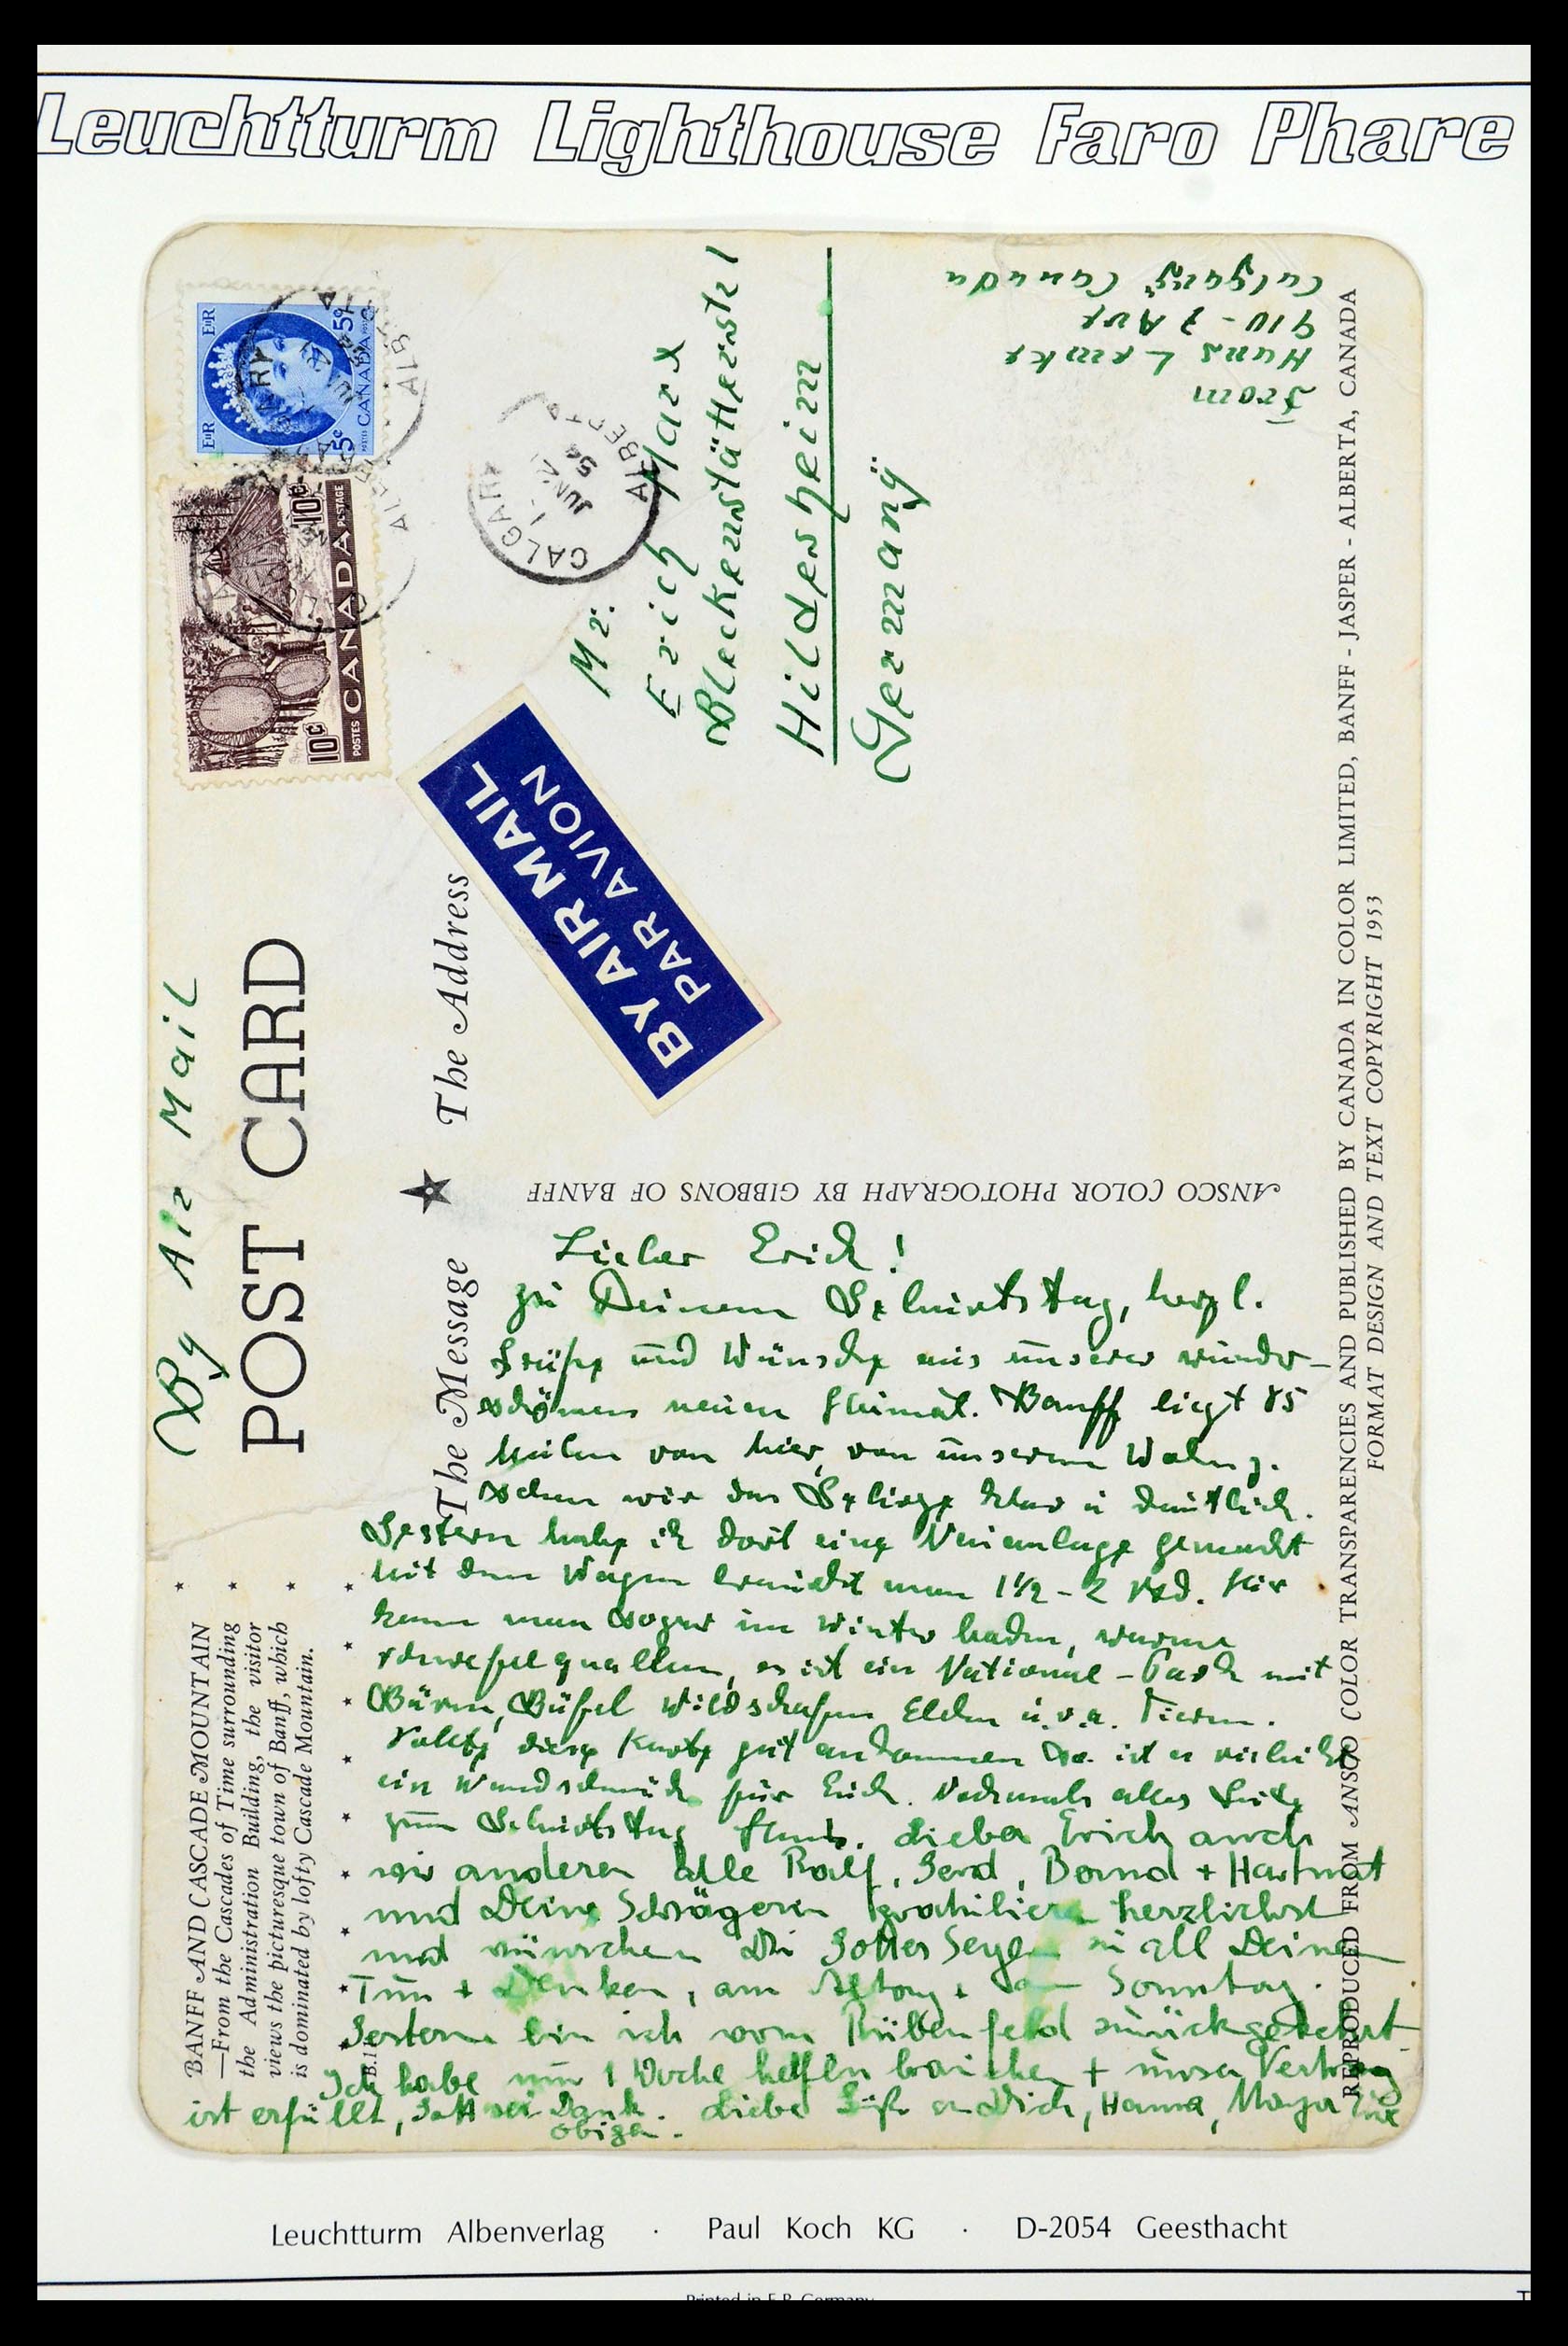 Leuchtturm Lighthouse Faro Phare
By Air Mail
POST CARD
The Message ★ The Address
BY AIR MAIL
PAR AVION
EIIR EIIR
5c 5c
POSTES CANADA POSTAGE
10c 10c
POSTES CANADA POSTAGE
CALGARY
JUN 21
54
ALBERTA
Mr.
Erich Marx
Bleckenstätterstr 1
Hildesheim
Germany
From
Hans Lemke
910 - 7 Ave
Calgary Canada
ANSCO COLOR PHOTOGRAPH BY GIBBONS OF BANFF
Lieber Erich!
zu Deinem Geburtstag, herzl.
Grüße und Wünsche aus unserer wunder-
schönen neuen Heimat. Banff liegt 85
Meilen von hier, von unserem Wohng.
sehen wir das Gebirge klar u deutlich.
Gestern habe ich dort eine Neuanlage gemacht
Mit dem Wagen braucht man 1½ - 2 Std. Hier
kann man sogar im Winter baden, warme
Schwefelquellen, es ist ein National-Park mit
Bären, Büffel Wildschafen Elchen u.v.a. Tieren.
Sollte diese Karte gut ankommen so ist es vieleicht
ein Wandschmuck für Euch. Nochmals alles Gute
zum Geburtstag Hans. Lieber Erich auch
wir anderen alle Ralf, Gerd, Bernd + Hartmut
und Deine Schwägerin gratulieren herzlichst
und wünschen Dir Gottes Segen in all Deinem
Tun + Denken, am Alltag + am Sonntag.
Gestern bin ich vom Rübenfeld zurückgekehrt
Ich habe nur 1 Woche helfen brauchen + unser Vertrag
ist erfüllt, Gott sei Dank. Liebe Grüße an Dich, Hanna, Marga
obigen.
BANFF AND CASCADE MOUNTAIN
—From the Cascades of Time surrounding
the Administration Building, the visitor
views the picturesque town of Banff, which
is dominated by lofty Cascade Mountain.
REPRODUCED FROM ANSCO COLOR TRANSPARENCIES AND PUBLISHED BY CANADA IN COLOR LIMITED, BANFF - JASPER - ALBERTA, CANADA
FORMAT DESIGN AND TEXT COPYRIGHT 1953
Leuchtturm Albenverlag · Paul Koch KG · D-2054 Geesthacht